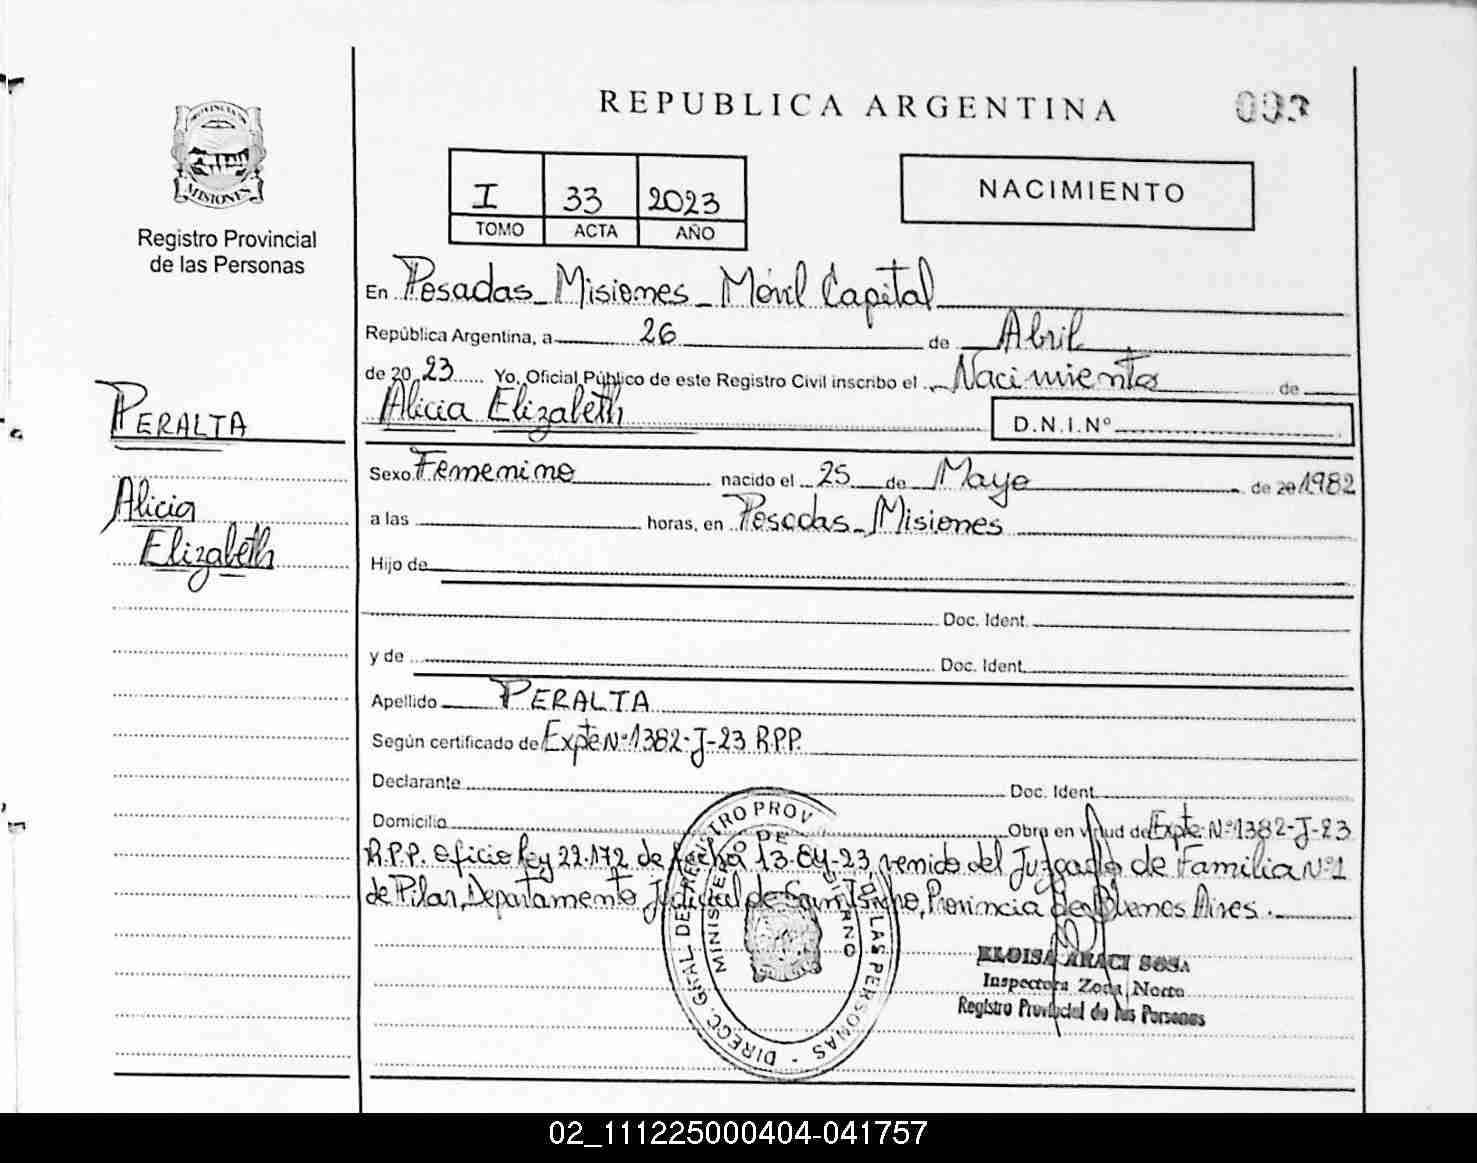 REPUBLICA ARGENTINA
003
PROVINCIA DE
MISIONES
Registro Provincial
de las Personas
I 33 2023
TOMO ACTA AÑO
NACIMIENTO
En Posadas - Misiones - Móvil Capital
República Argentina, a 26 de Abril
de 2023 Yo, Oficial Público de este Registro Civil inscribo el Nacimiento de
Alicia Elizabeth D.N.I.Nº
PERALTA
Alicia
Elizabeth
Sexo Femenino nacido el 25 de Mayo de 20 1982
a las horas, en Posadas - Misiones
Hijo de
Doc. Ident.
y de Doc. Ident.
Apellido PERALTA
Según certificado de Expte Nº 1382-J-23 R.P.P.
Declarante Doc. Ident.
Domicilio Obra en virtud de Expte. Nº 1382-J-23
R.P.P. Oficio Ley 22.172 de fecha 13-04-23 venido del Juzgado de Familia Nº 1
de Pilar, Departamento Judicial de San Isidro, Provincia de Buenos Aires.
DIRECC. GRAL. DEL REGISTRO PROV. DE LAS PERSONAS
MINISTERIO DE GOBIERNO
ELOISA ARACI SOSA
Inspectora Zona Norte
Registro Provincial de las Personas
02_111225000404-041757